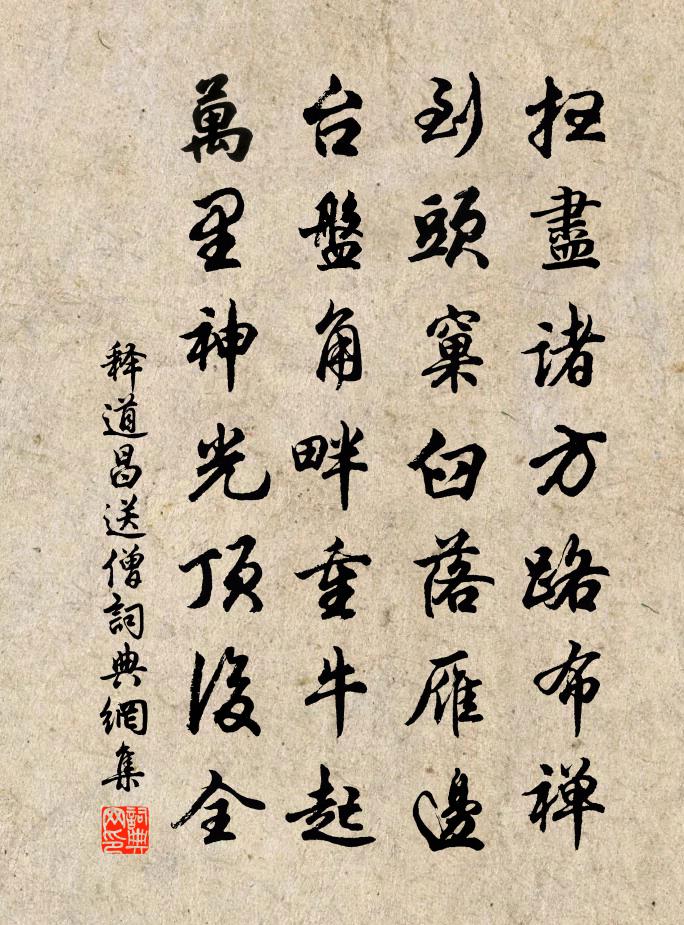 扫盡諸方路布禅
到頭窠臼落雁邊
台盤角畔重牛起
萬里神光頂後全
釋道昌送僧詞典網集
詞典网印